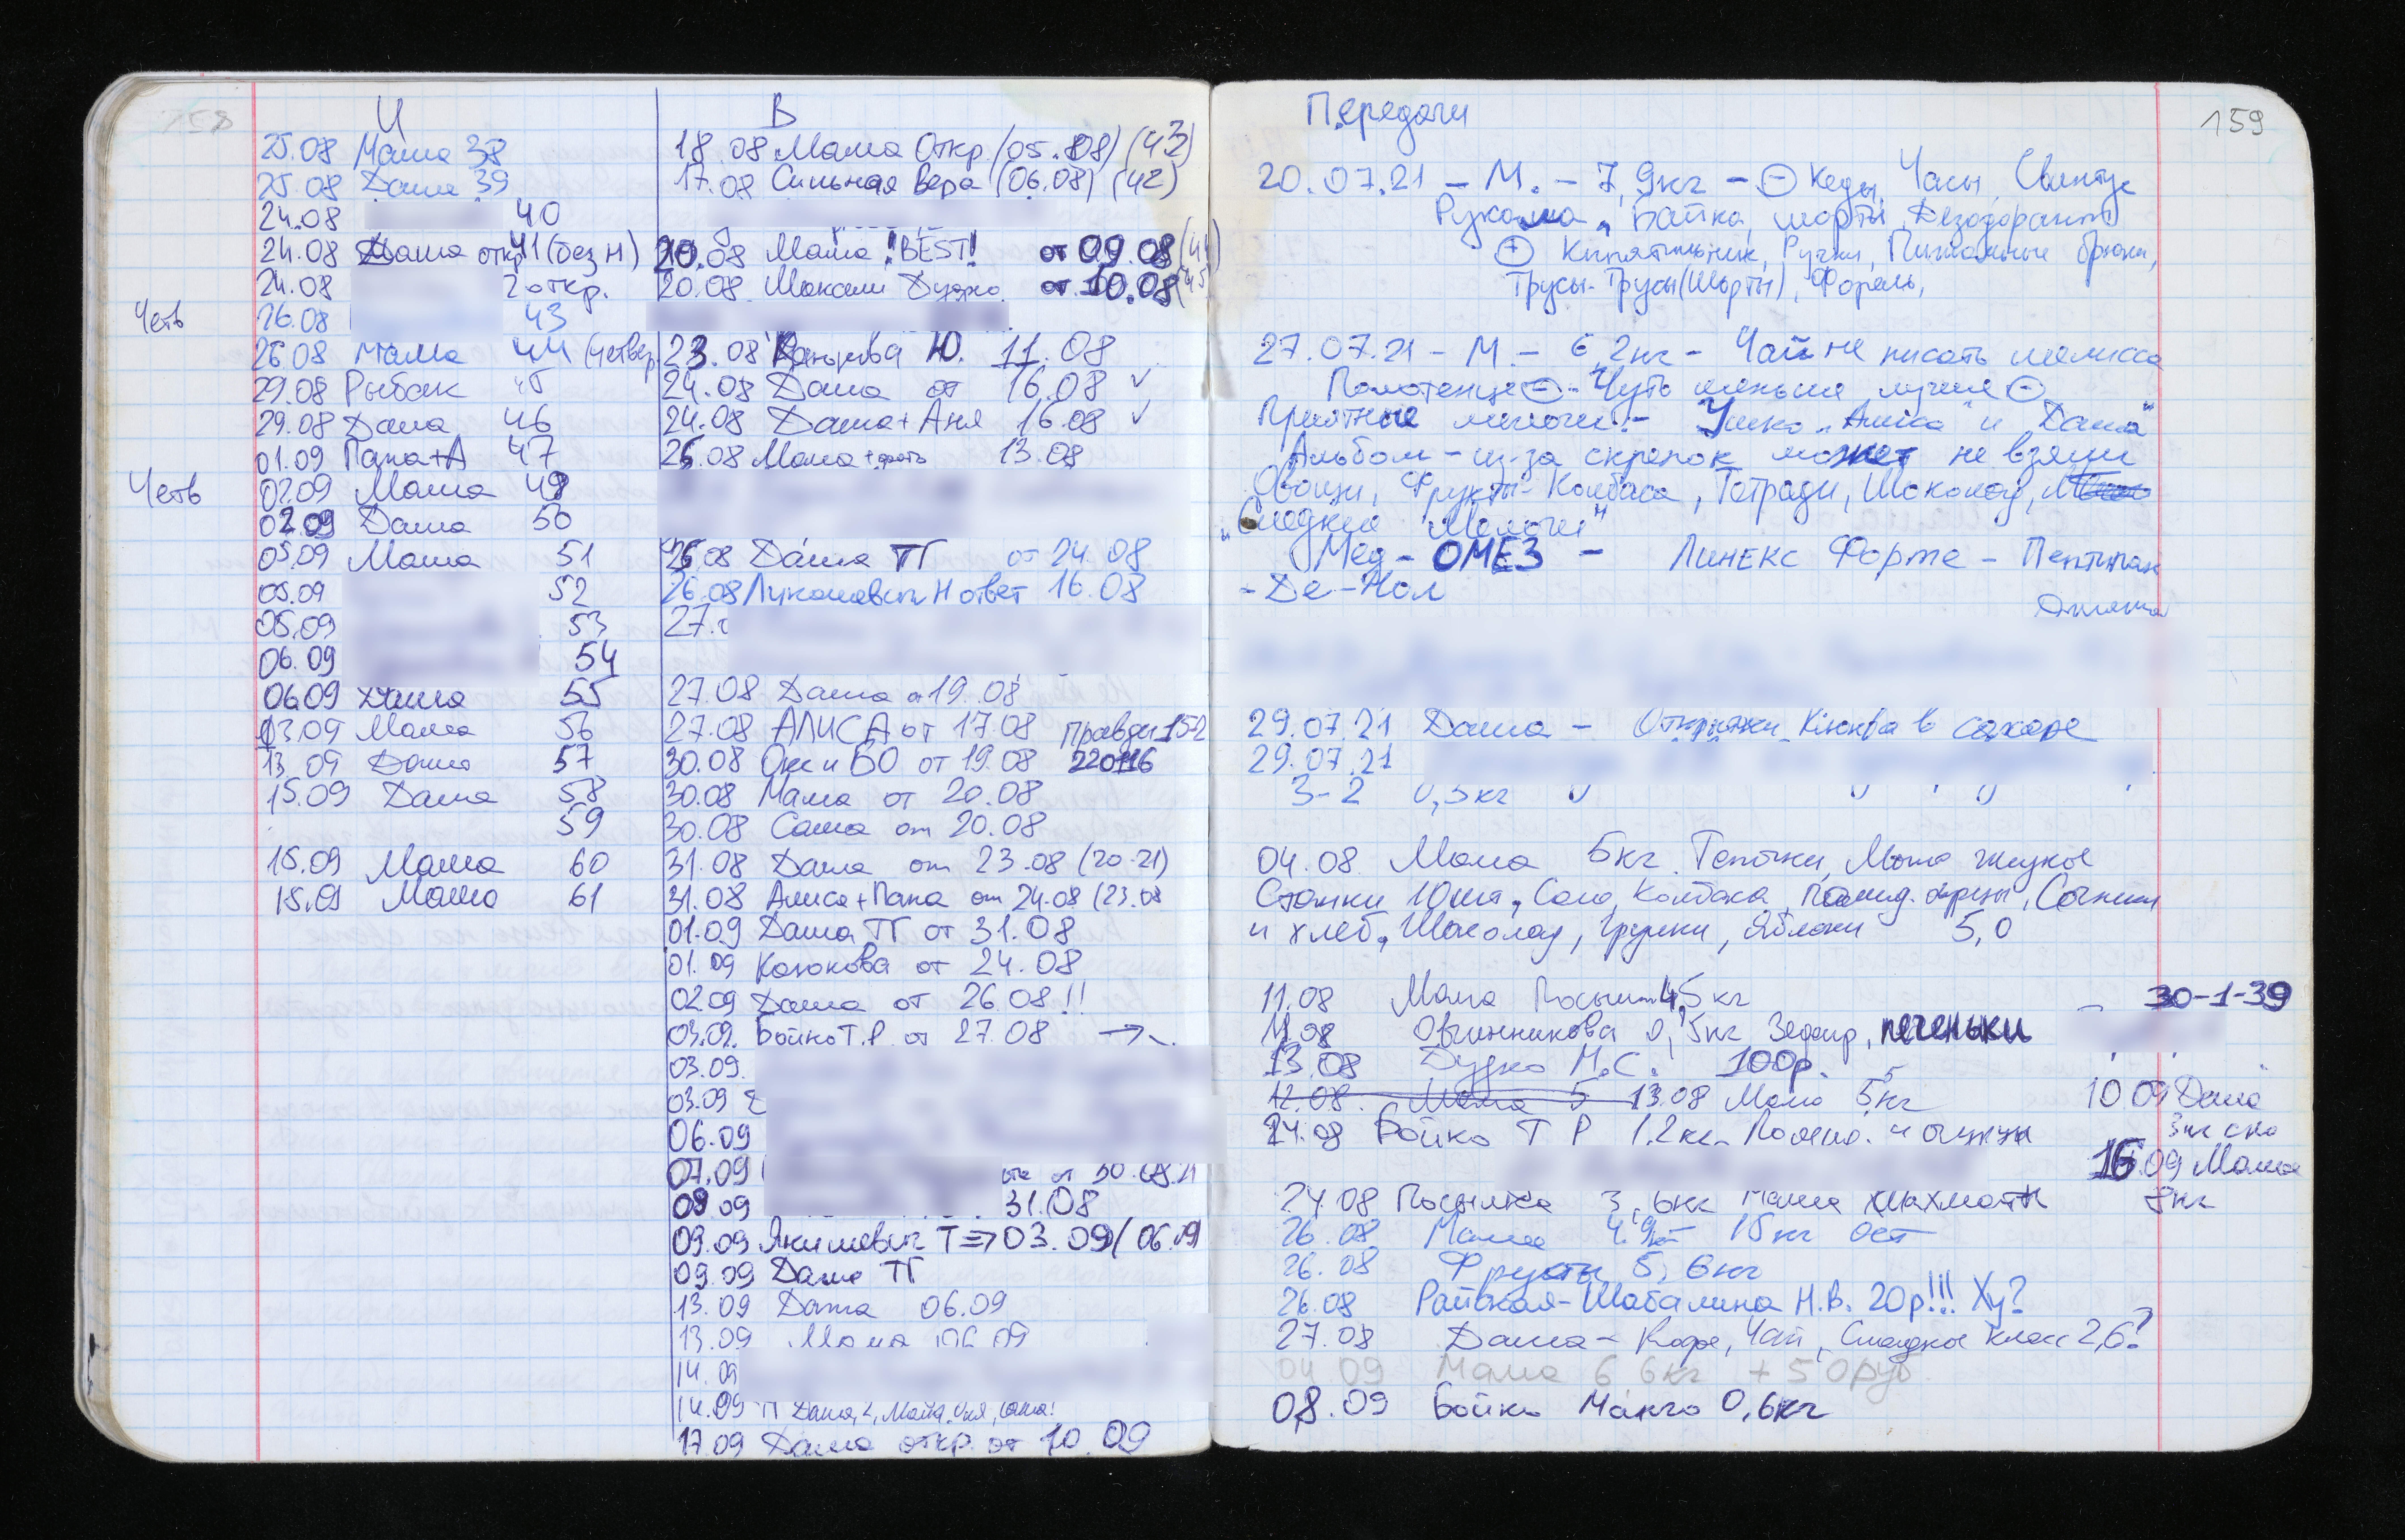 158
И
25.08 Мама 38
25.08 Даша 39
24.08 40
24.08 Даша откр 41 (без Н)
24.08 2 откр.
Четв 26.08 43
26.08 Мама 44 (четвер
29.08 Рыбак 45
29.08 Даша 46
01.09 Папа+А 47
Четв 02.09 Маша 49
02.09 Даша 50
05.09 Маша 51
05.09 52
05.09 53
06.09 54
06.09 Даша 55
13.09 Мама 56
13.09 Даша 57
15.09 Даша 58
59
15.09 Мама 60
15.09 Мама 61
В
18.08 Мама Откр. (05.08) (43)
17.08 Сильная Вера (06.08) (42)
20.08 Маша !BEST! от 09.08 (44)
20.08 Максим Дудко от 10.08 (45
23.08 Ю. 11.08
24.08 Даша от 16.08 ✓
24.08 Даша+Аня 16.08 ✓
26.08 Мама + 13.08
26.08 Даша ТГ от 24.08
26.08 Лукашевич Н ответ 16.08
27.
27.08 Даша от 19.08
27.08 АЛИСА от 17.08 Правды 152
30.08 БО от 19.08 220116
30.08 Мама от 20.08
30.08 Саша от 20.08
31.08 Даша от 23.08 (20-21)
31.08 Алиса+Папа от 24.08 (23.08
01.09 Даша ТГ от 31.08
01.09 Конюкова от 24.08
02.09 Даша от 26.08!!
03.09. Бойко Т.Р. от 27.08 →
03.09.
03.09
06.09
07.09 от 30.08.21
08.09 31.08
09.09 Якимевич Т ⇒ 03.09 (06.09)
09.09 Даша ТГ
13.09 Даша 06.09
13.09 Мама 06.09
14.09
14.09 ТГ Даша
17.09 Даша откр. от 10.09
159
Передачи
20.07.21 – М. – 7,9кг – ⊖ Кеды, Часы,
Байка, шорты, Дезодорант
⊕ Кипятильник, Ручки, Пижамные брюки,
Трусы-Трусы(Шорты), Форель,
27.07.21 – М. – 6,2кг – Чай не писать мелисса
Полотенце ⊖ – Чуть меньше лучше ⊖
Приятные мелочи – "Алиса" и "Даша"
Альбом – из-за скрепок может не взяли
Овощи, Фрукты – Колбаса, Тетради, Шоколад,
"Сладкие Мелочи"
Мед – ОМЕЗ – Линекс Форте –
– Де-Нол
29.07.21 Даша – Открытки, Клюква в сахаре
29.07.21
3-2 0,5кг " " "
04.08 Мама 5кг. Тапочки, Мыло жидкое
Станки 10шт, Сало, Колбаса, Помид. огурцы,
и хлеб, Шоколад, Груши, Яблоки 5,0
11.08 Мама Посылка 4,5 кг
30-1-39
11.08 Овчинникова 0,5кг Зефир, печеньки
13.08 Дудко М.С. 100р.
12.08. Мама 5 13.08 Мама 5,5кг
10.09 Даша
3кг
24.08 Бойко Т Р 1.2кг. Помид. и огурцы
16.09 Мама
8кг
24.08 Посылка 3,6кг мама шахматы
26.08 Мама 4.9кг – 15кг ост
26.08 Фрукты 5,6кг
26.08 Райская-Шабалина Н.В. 20р!!! Ху?
27.08 Даша – Кофе, Чай, Сладкое класс 2,6?
04.09 Мама 6 6кг + 50руб
08.09 Бойко Манго 0,6кг